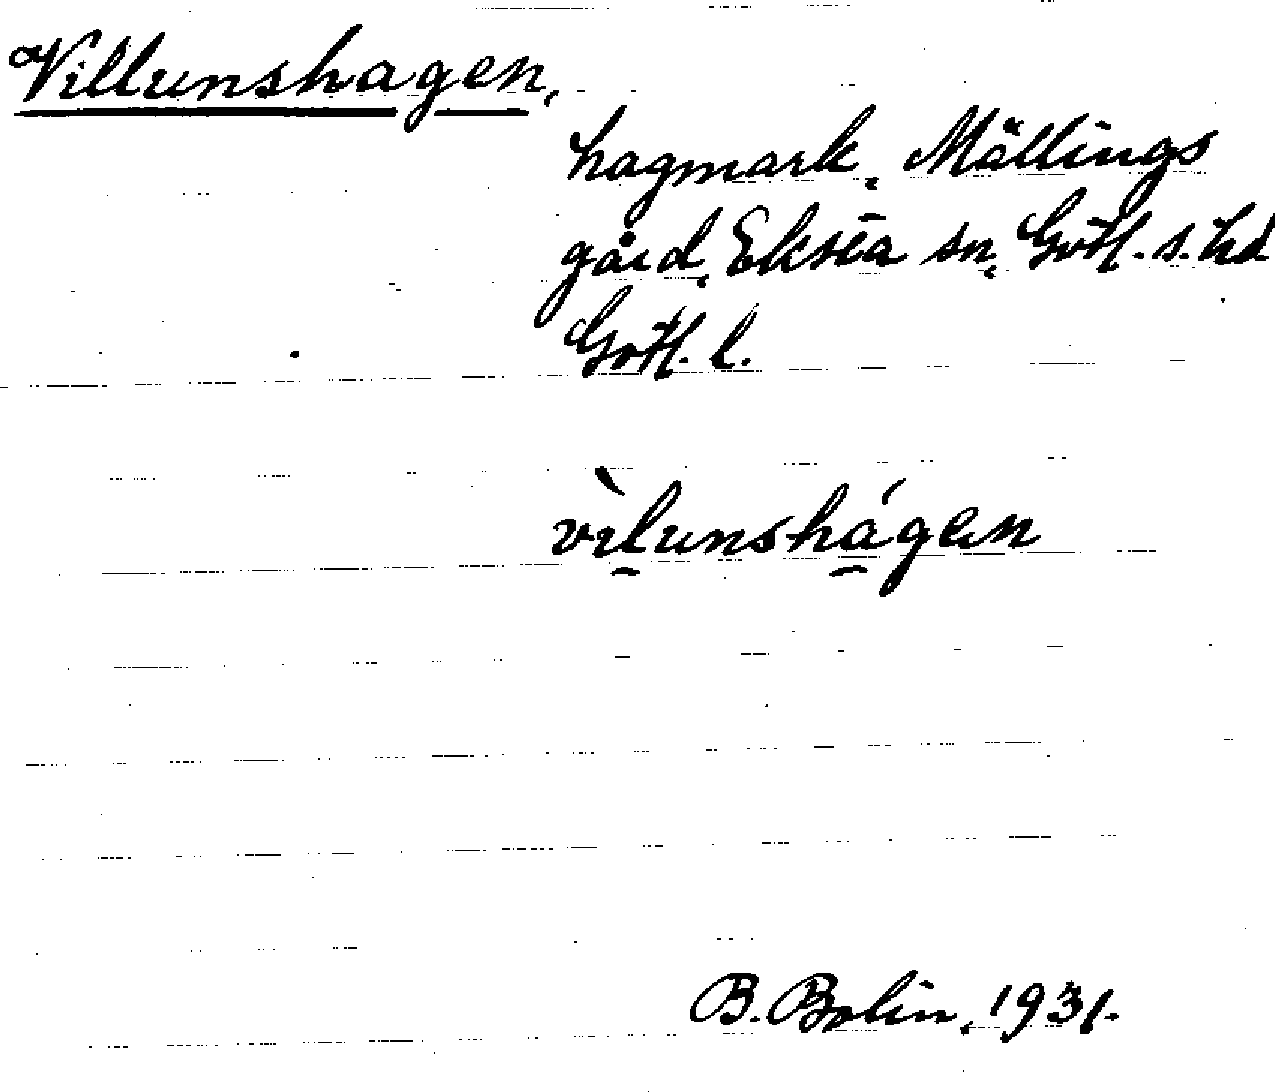 Villunshagen,
hagmark, Mällings
gård, Eksta sn, Gotl. s. hd
Gotl. l.
vìlunshágen
B. Bolin, 1931.